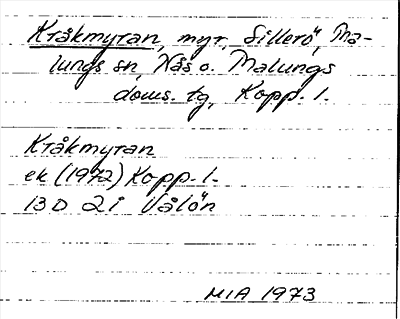 Kråkmyran, myr, Sillerö, Ma-
lungs sn, Nås o. Malungs
doms. tg, Kopp. l.
Kråkmyran
ek (1972) Kopp. l.
13 D 2 i Vålön
MIA 1973